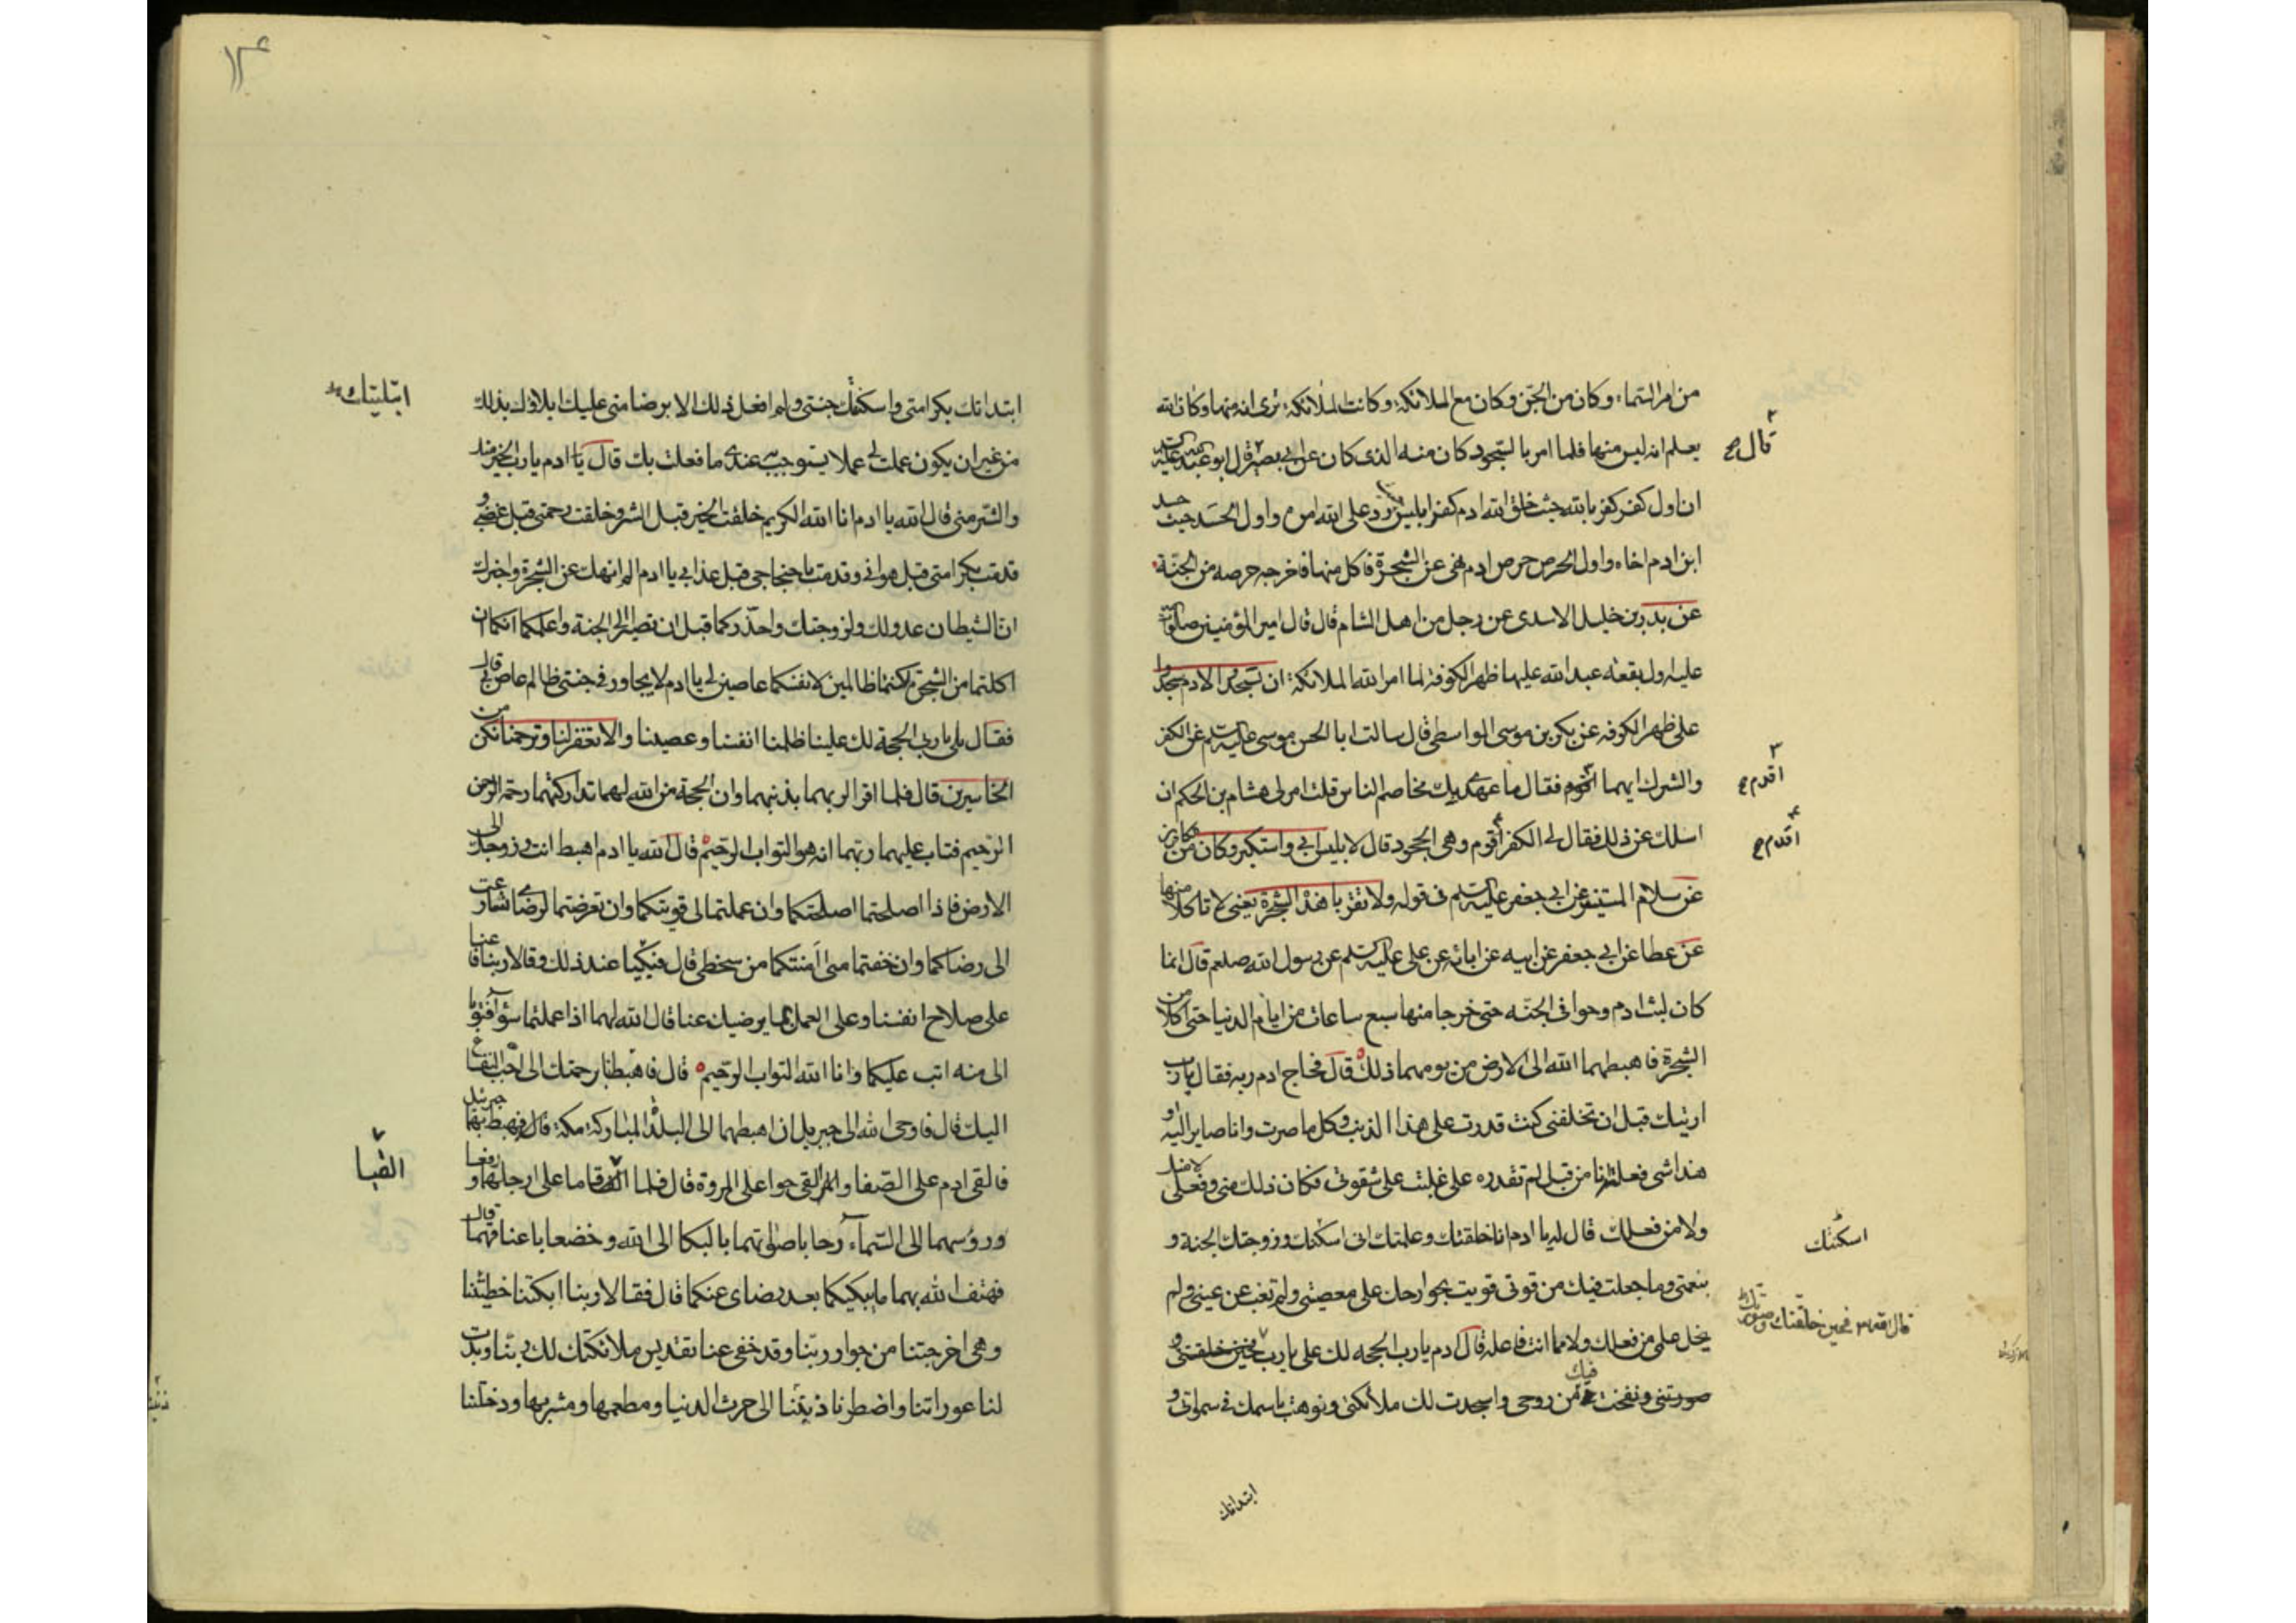 من امر السماء وكان من الجن وكان مع الملائكة وكانت الملائكة ترى انه منها وكان الله
يعلم انه ليس منها فلما امر بالسجود كان منه الذى كان عن ابى بصير قال ابو عبد الله عليه
قال
ان اول كفر كفر بالله حيث خلق الله ادم كفر ابليس رد على الله امره واول الحسد حيث حسد
ابن ادم اخاه واول الحرص حرص ادم نهى عن الشجرة فاكل منها فاخرجه حرصه من الجنة
عن بدر بن خليل الاسدى عن رجل من اهل الشام قال قال امير المؤمنين صلوات
عليه اول بقعه عبد الله عليها ظهر الكوفة لما امر الله الملائكة ان تسجدوا لادم سجدوا
على ظهر الكوفه عن بكر بن موسى الواسطى قال سالت ابا الحسن موسى عليه السلم عن الكفر
والشرك ايهما اقوم فقال ما عهدى بك تخاصم الناس قلت امرلى هشام بن الحكم ان
اقدم
اسلك عن ذلك فقال لى الكفر اقوم وهى الجحود قال لابليس ابى واستكبر وكان من الكافرين
اقدم
عن سلام المستنير عن ابى جعفر عليه السلم فى قوله ولا تقربا هذه الشجرة يعنى لا تاكلا منها
عن عطا عن ابى جعفر عن ابيه عن ابائه عن على عليه السلم عن رسول الله صلعم قال انما
كان لبث ادم وحوا فى الجنه حتى خرجا منها سبع ساعات من ايام الدنيا حتى اكلا من
الشجرة فاهبطهما الله الى الارض من يومهما ذلك قال فحاج ادم ربه فقال يا رب
ارئيتك قبل ان تخلقنى كنت قدرت على هذا الذنب وكل ما صرت وانا صاير اليه او
هذا شى فعلته انا من قبل لم تقدره على غلبت على شقوتى فكان ذلك منى وفعلى لا منك
ولا من فعلك قال له يا ادم انا خلقتك وعلمتك انى اسكنك وزوجتك الجنة و
اسكنتك
بنعمتى وما جعلت فيك من قوتى قويت بجوارحك على معصيتى ولم تغب عن عينى ولم
يخل على من فعلك ولا مما انت فاعله قال ادم يا رب الحجه لك على يا رب فحين خلقتنى و
قال الله فحين خلقتك وصورتك
صورتنى ونفخت فيك من روحى واسجدت لك ملائكتى ونوهت باسمك فى سمواتى و
ابتداتك
۱۳
ابتداتك بكرامتى واسكنتك جنتى ولم افعل ذلك الا برضا منى عليك ابلاؤك بذلك
ابتليتك
من غير ان يكون عملت لى عملا يستوجب به عندى ما فعلت بك قال يا ادم يا رب الخير منك
والشر منى قال الله يا ادم انا الله الكريم خلقت الخير قبل الشر وخلقت رحمتى قبل غضبى و
قدمت بكرامتى قبل هوانى وقدمت باحتجاجى قبل عذابى يا ادم الم انهك عن الشجرة واخبرك
ان الشيطان عدو لك ولزوجتك واحذركما قبل ان تصيرا الى الجنة واعلمكما انكما ان
اكلتما من الشجرة كنتما ظالمين لانفسكما عاصين لى يا ادم لا يجاورنى فى جنتى ظالم عاص لى قال
فقال بلى يا رب الحجة لك علينا ظلمنا انفسنا وعصينا والا تغفر لنا وترحمنا نكن من
الخاسرين قال فلما اقرا لربهما بذنبهما وان الحجة من الله لهما تداركتهما رحمة الرحمن
الرحيم فتاب عليهما ربهما انه هو التواب الرحيم قال الله يا ادم اهبط انت وزوجك الى
الارض فاذا اصلحتما اصلحتكما وان عملتما لى قويتكما وان تعرضتما لرضاى تسارعت
الى رضاكما وان خفتما منى آمنتكما من سخطى قال فبكيا عند ذلك وقالا ربنا فاعنا
على صلاح انفسنا وعلى العمل بما يرضيك عنا قال الله لهما اذا عملتما سوآ فتوبا
الى منه اتب عليكما وانا الله التواب الرحيم قال فاهبطنا برحمتك الى احب البقاع
اليك قال فاوحى الله الى جبريل ان اهبطهما الى البلدة المباركة مكة قال فهبط بهما جبرئيل
فالقى ادم على الصفا والقى حوا على المروة قال فلما القيا قاما على ارجلهما ورفعا
القيا
ورؤسهما الى السماء وضجا باصواتهما بالبكا الى الله وخضعا باعناقهما قال
فهتف الله بهما ما يبكيكما بعد رضاى عنكما قال فقالا ربنا ابكتنا خطيئتنا
وهى اخرجتنا من جوار ربنا وقد خفى عنا تقديس ملائكتك لك ربنا وبدت
لنا عوراتنا واضطرنا ذنبنا الى حرث الدنيا ومطعمها ومشربها ودخلتنا